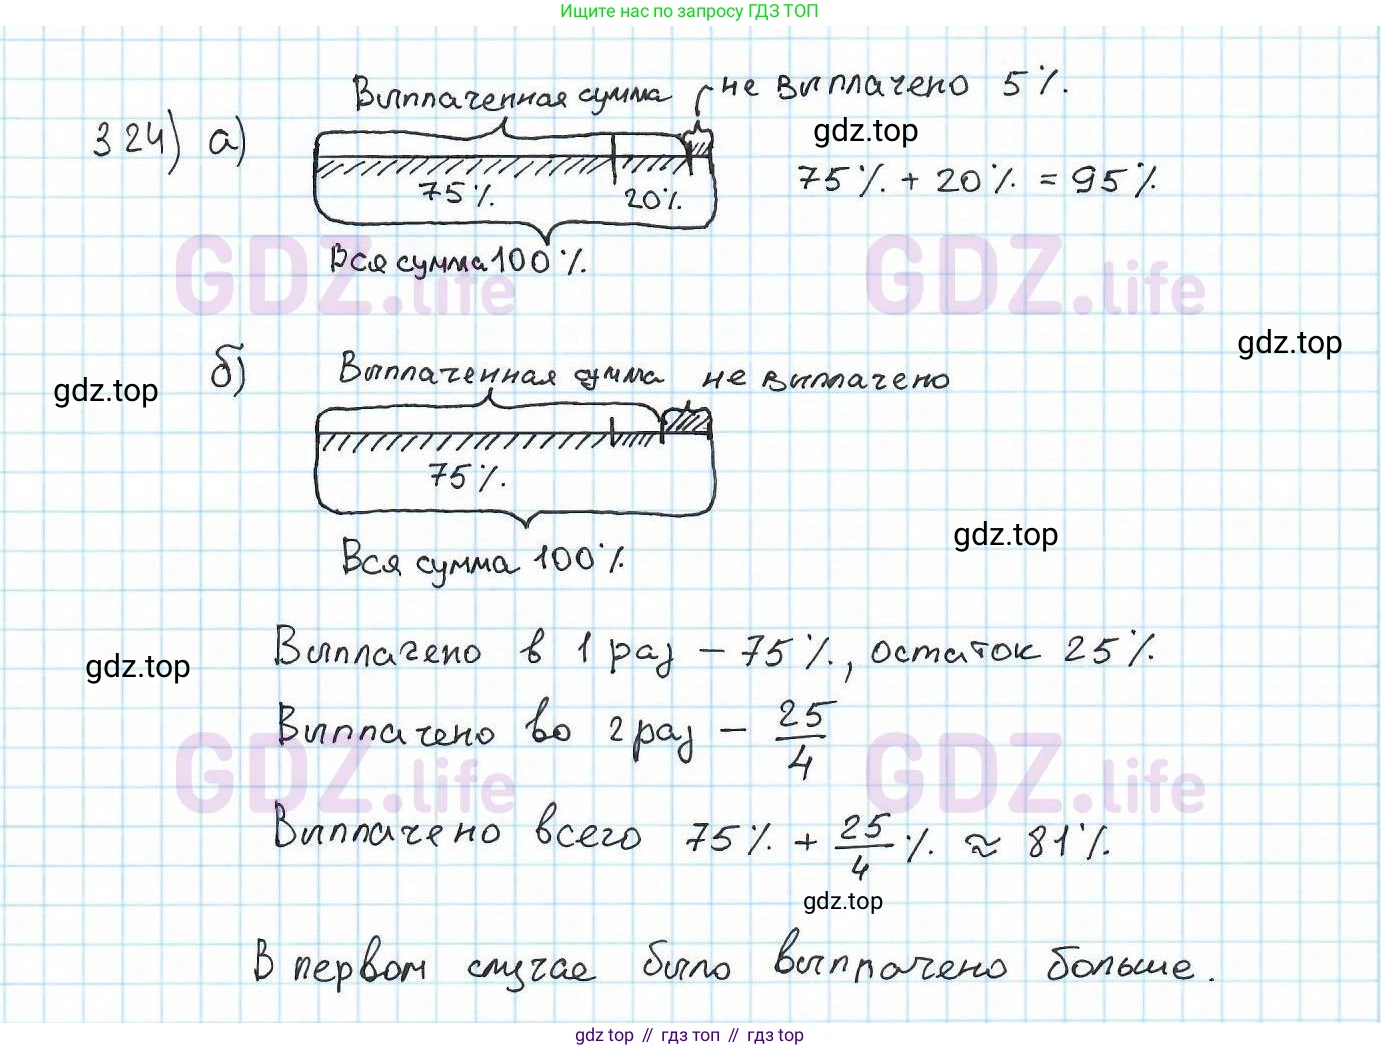 Ищите нас по запросу ГДЗ ТОП
Выплаченная сумма не выплачено 5%.
324) а)
gdz.top
75% + 20% = 95%
75%.
20%.
Вся сумма 100%.
GDZ.life GDZ.life
gdz.top
б) Выплаченная сумма не выплачено
gdz.top
75%.
gdz.top
Вся сумма 100%.
Выплачено в 1 раз – 75%., остаток 25%.
gdz.top
Выплачено во 2 раз – 25/4
GDZ.life GDZ.life
Выплачено всего 75% + 25/4 %. ≈ 81%.
gdz.top
В первом случае было выплачено больше.
gdz.top // гдз топ // gdz.top